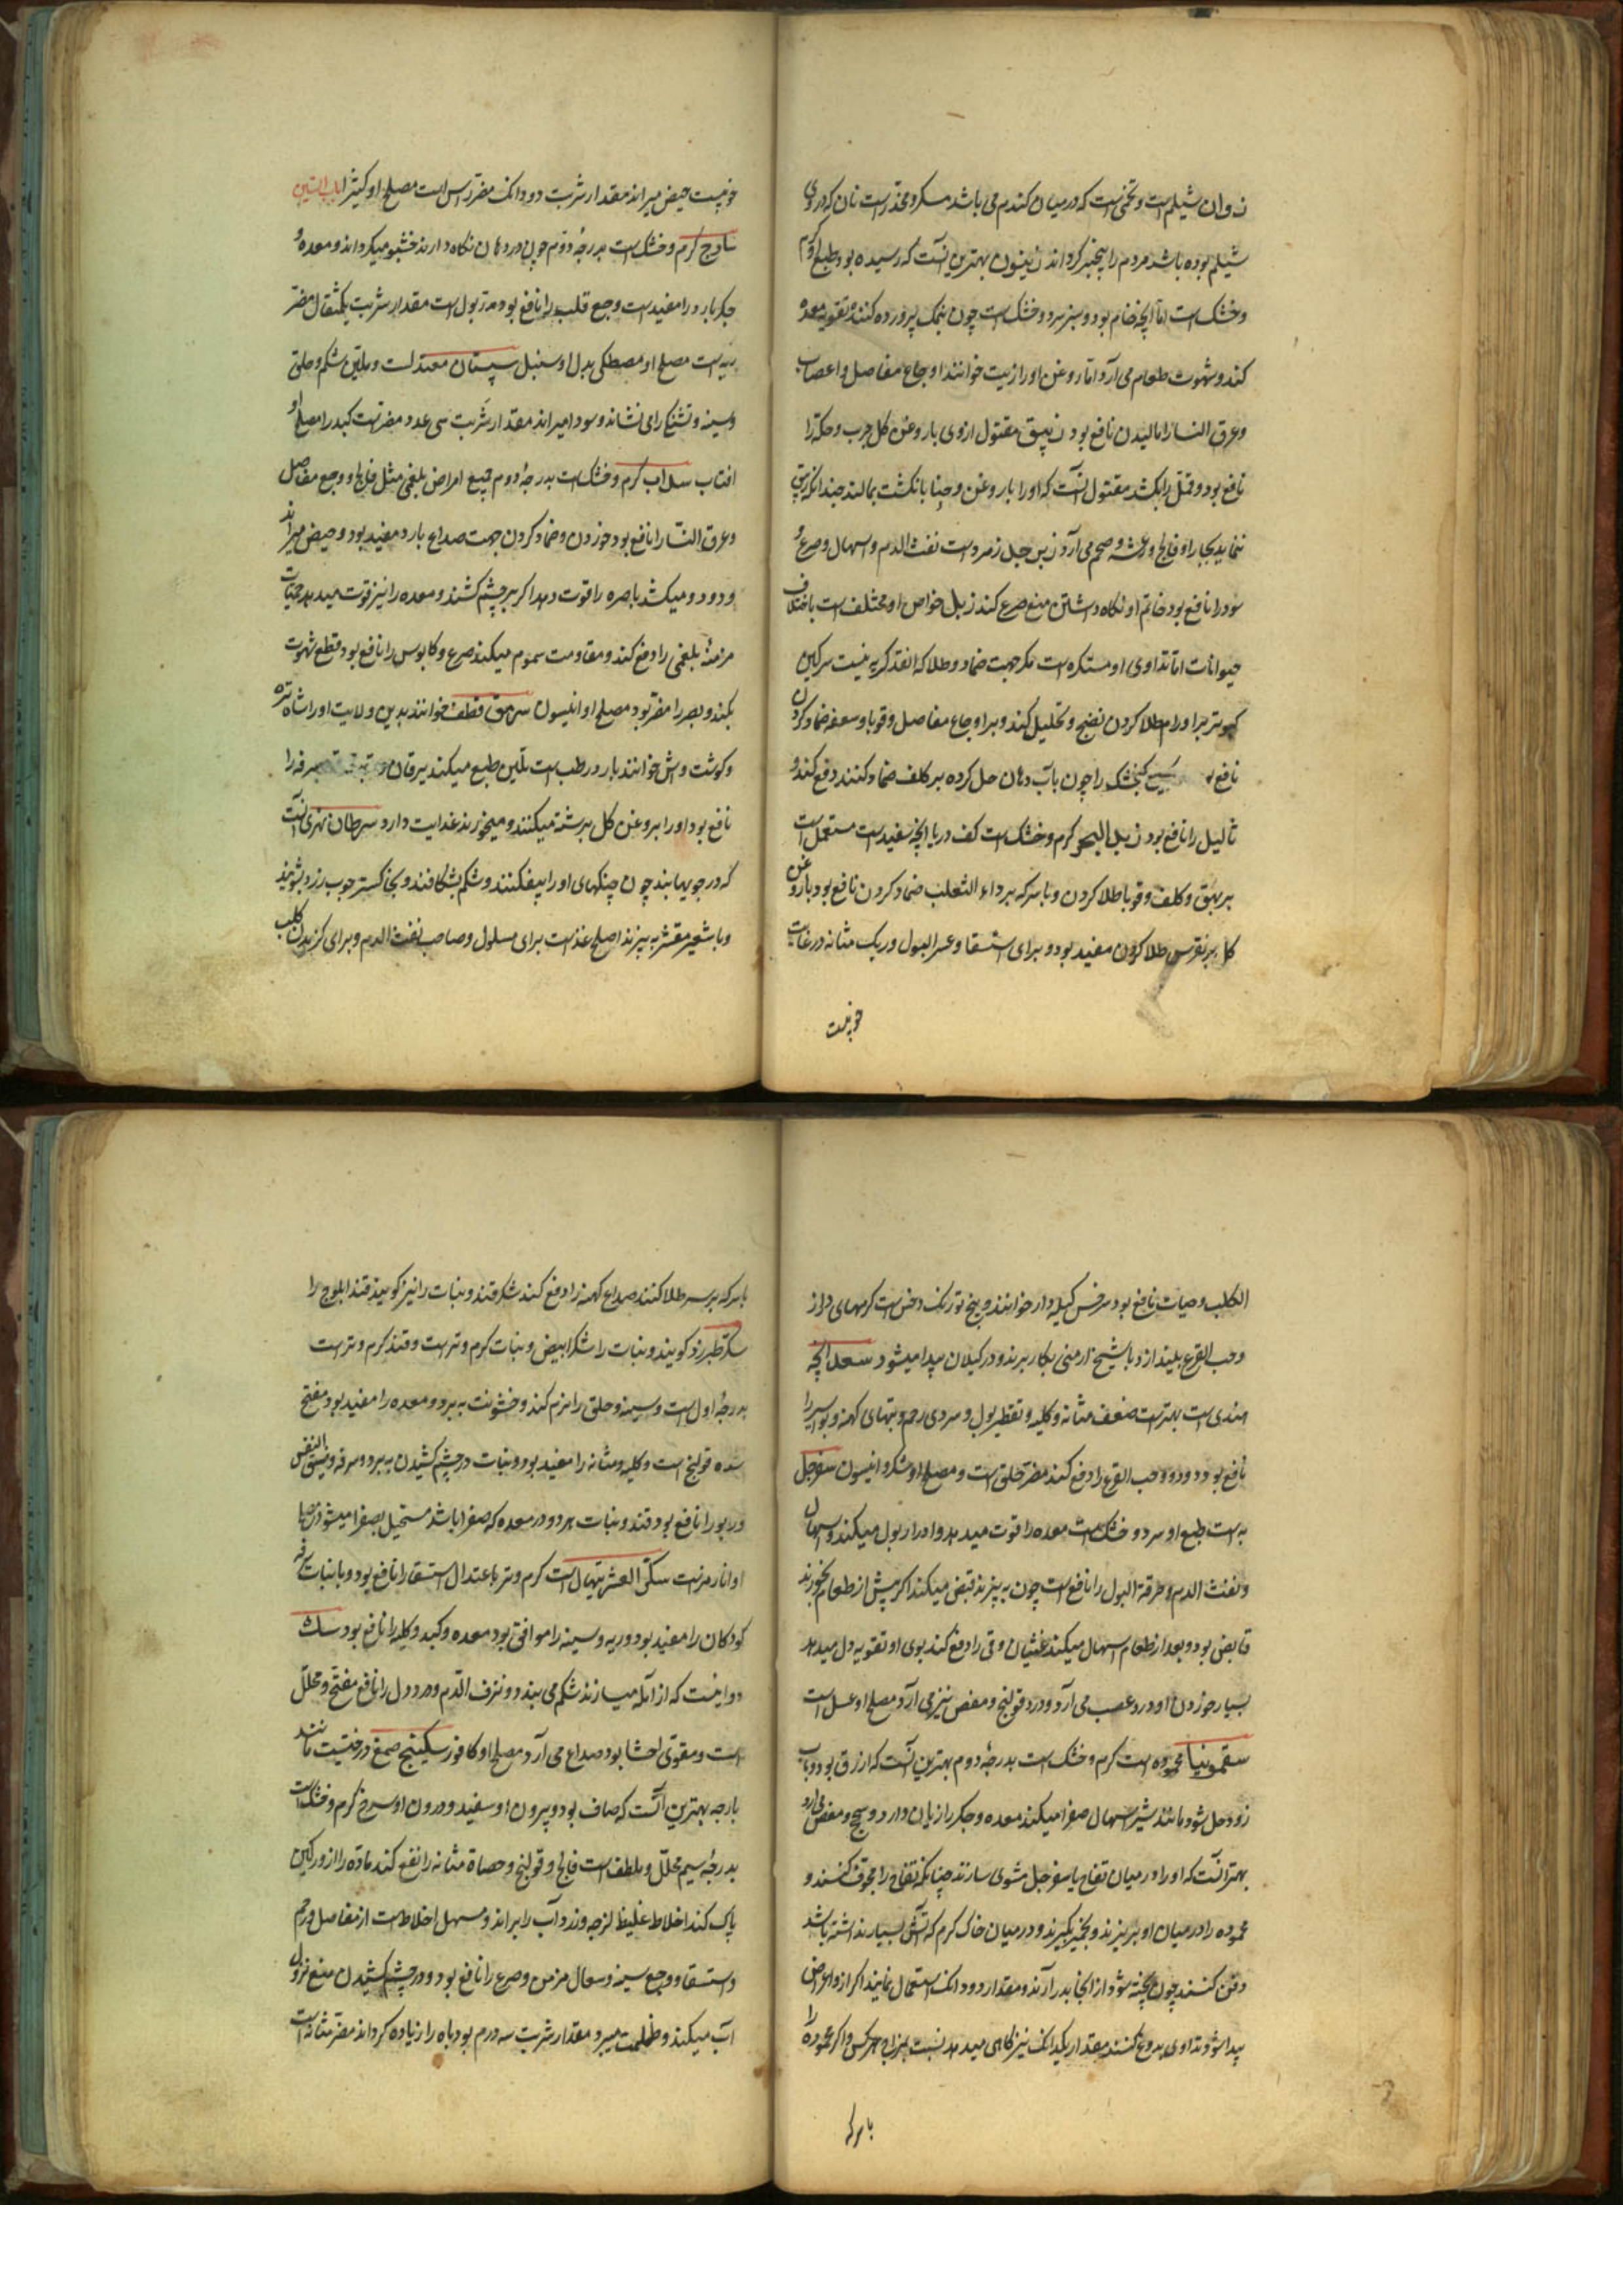 زوان شیلم است و تخمی است که در میان کندم می باشد مسکر و مخدر است نان که در وی
شیلم بوده باشد مردم را بیخبر کرداند زیتون بهترین آنست که رسیده بود و طبع او کرم
و خشک است اما آنچه خام بود و سبز سرد و خشک است چون بنمک پرورده کنند تقویه معده
کند و شهوت طعام می آرد اما روغن او را زیت خوانند اوجاع مفاصل و اعصاب
و عرق النسا را مالیدن نافع بود زیبق مقتول از وی با روغن کل جرب و حکه را
نافع بود و قمل را بکشد مقتول آنست که او را با روغن و حنا بانکشت بمالند چندانکه زیبق
ننماید بخار او فالج و رعشه و صمم می آرد زبرجد زمرد است نفث الدم و اسهال و صرع
سود را نافع بود خاتم او نکاه داشتن منع صرع کند زبل خواص او مختلف است باختلاف
حیوانات اما تداوی او مستکره است مکر جهت ضماد و طلا که انقدر کریه نیست سرکین
کبوتر بر اورام طلا کردن نضج و تحلیل کند و بر اوجاع مفاصل و قوبا و سعفه ضماد کردن
نافع کنجشک را چون باب دهان حل کرده بر کلف ضماد کنند دفع کند و
ثالیل را نافع بود زبد البحر کرم و خشک است کف دریا آنچه سفید است مستعمل است
بر بهق و کلف و قوبا طلا کردن و با سرکه بر داء الثعلب ضماد کردن نافع بود با روغن
کل بر نقرس طلا کردن مفید بود و برای استسقا و عسر البول و ریک مثانه در غایت
خوبیست
خوبیست حیض میراند مقدار شربت دو دانک مضر راس است مصلح او کتیرا باب السین
ساذج کرم و خشک است بدرجه دوم چون در دهان نکاه دارند خشبو میکرداند و معده و
جکر بارد را مفید است و جع قلب را نافع بود مدر بول است مقدار شربت یکمثقال مضر
ریه است مصلح او مصطکی بدل او سنبل سپستان معتدلست و ملین شکم و حلق
و سینه و تشنج را می نشاند و سودا میراند مقدار شربت سی عدد مضرتست کبد را مصلح او
افتاب سداب کرم و خشک است بدرجه دوم جمیع امراض بلغمی مثل فالج و وجع مفاصل
و عرق النسا را نافع بود خوردن و ضماد کردن جهت صداع بارد مفید بود و حیض میراند
و دود و میکشد باصره را قوت دهد اکر بر چشم کشند و معده را نیز قوت میدهد حمیات
مزمنه بلغمی را دفع کند و مقاومت سموم میکند صرع و کابوس را نافع بود قطع شهوت
بکند و بصر را مضر بود مصلح او انیسون سرمق قطف خوانند بدین ولایت او را شاه تره
و کوشت وش خوانند بارد رطب است تلیین طبع میکند یرقان سرفه را
نافع بود او را بروغن کل برشته میکنند و میخورند غذائیت دارد سرطان نهری آنست
که در جویها بند چون چنکهای او را بیفکنند و شکم بشکافند و بخاکستر چوب رز بشویند
و با شعیر مقشر به پزند اصلح غذاست برای مسلول و صاحب نفث الدم و برای کزیدن کلب
الکلب و حیات نافع بود سرخس کیله دار خوانند و بیخ تورنک و خس است کرمهای دراز
و حب القرع بیندازد با شیح ارمنی بکار برند و در کیلان پیدا میشود سعد آنچه
هندی است بهتر است ضعف مثانه و کلیه و تقطیر بول و سردی رحم و تبهای کهنه و بواسیر را
نافع بود و دود و حب القرع را دفع کند مضر حلق است و مصلح او شکر و انیسون سفرجل
به است طبع او سرد و خشک است معده را قوت میدهد و ادرار بول میکند و اسهال
و نفث الدم و حرقة البول را نافع است چون به پزند قبض میکند اکر پیش از طعام بخورند
قابض بود و بعد از طعام اسهال میکند غثیان و قی را دفع کند بوی او تقویه دل میدهد
بسیار خوردن او درد عصب می آرد و درد قولنج و مغص نیز می آرد مصلح او عسل است
سقمونیا محموده است کرم و خشک است بدرجه دوم بهترین آنست که ازرق بود و باب
زود حل شود مانند شیر اسهال صفرا میکند معده و جکر را زیان دارد و سحج و مغص می آرد
بهتر آنست که او را در میان تفاح یا سفرجل مشوی سازند چنانکه تفاح را مجوف کنند و
محموده را در میان او بریزند و بخمیر کیرند و در میان خاک کرم که آتش بسیار نداشته باشد
دفن کنند چون پخته شود از انجا بدر آرند و مقدار دو دانک استعمال نمایند اکر ازو اعراض
پیدا شود تداوی بدوغ کنند مقدار یکدانک نیز کاهی میدهند نسبت بمزاج هر کس و اکر محموده را
با سرکه
با سرکه بر سر طلا کنند صداع کهنه را دفع کند شکر قند و نبات را نیز کویند قند ابلوج را
سکر طبرزد کویند و نبات را شکر ابیض و نبات کرم و تر است و قند کرم و تر است
بدرجه اول است و سینه و حلق را نرم کند و خشونت به برد و معده را مفید بود مفتح
سده قولنج است و کلیه و مثانه را مفید بود و نبات در چشم کشیدن به برد و سرفه و ضیق النفس
و ربو را نافع بود قند و نبات هر دو در معده که صفرا باشد مستحیل بصفرا میشود مصلح
او انار مز است سکر العشر تیهال است کرم و تر باعتدال استسقا را نافع بود و با نبات سرفه
کودکان را مفید بود و ریه و سینه را موافق بود معده و کبد و کلیه را نافع بود سک
دوایست که از آمله میسازند شکم می بندد و نزف الدم و درد دل را نافع مفتح و محلل
است و مقوی احشا بود صداع می آرد مصلح او کافور سکبینج صمغ درختیست مانند
بارجه بهترین آنست که صاف بود و بیرون او سفید و درون او سرخ کرم و خشک است
بدرجه سیم محلل و ملطف است فالج و قولنج و حصاة مثانه را نفع کند ماده را از ورکین
پاک کند اخلاط غلیظ لزجه و زرد آب را براند و مسهل اخلاط است از مفاصل و رحم
و استسقا و وجع سینه و سعال مزمن و صرع را نافع بود و در چشم کشیدن منع نزول
آب میکند و ظلمت میبرد مقدار شربت سه درم بود باه را زیاده کرداند مضر مثانه است